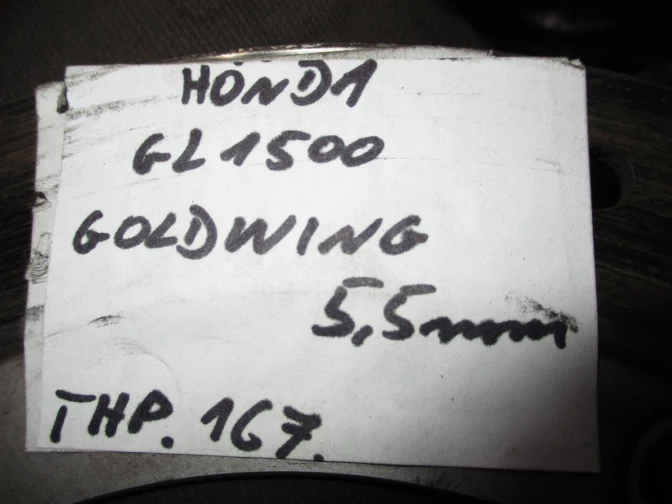 HONDA
GL1500
GOLDWING
5,5mm
THP. 167.